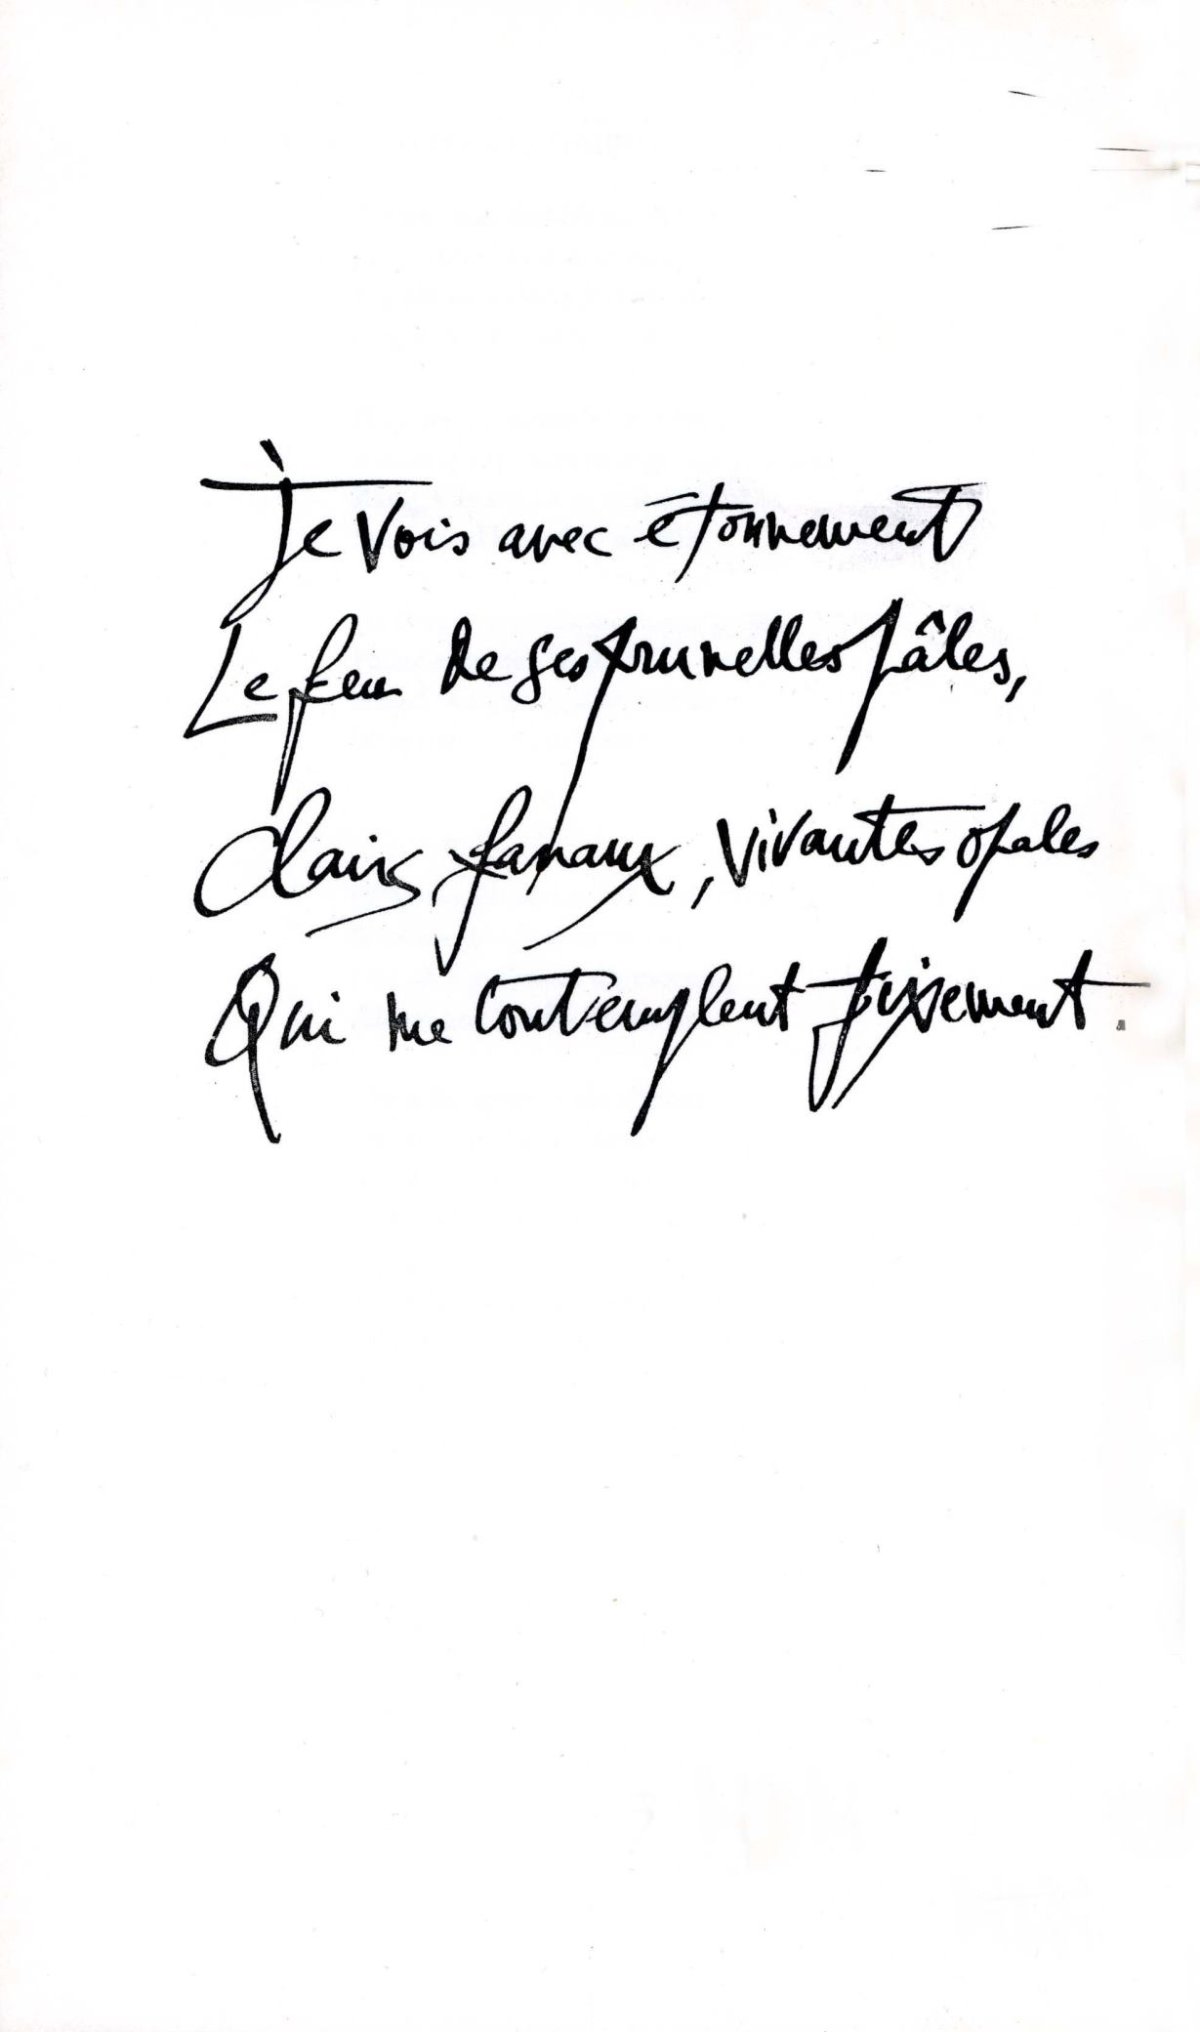 Je vois avec étonnement
Le feu de ses prunelles pâles,
Clairs fanaux, vivantes opales
Qui me contemplent fixement.